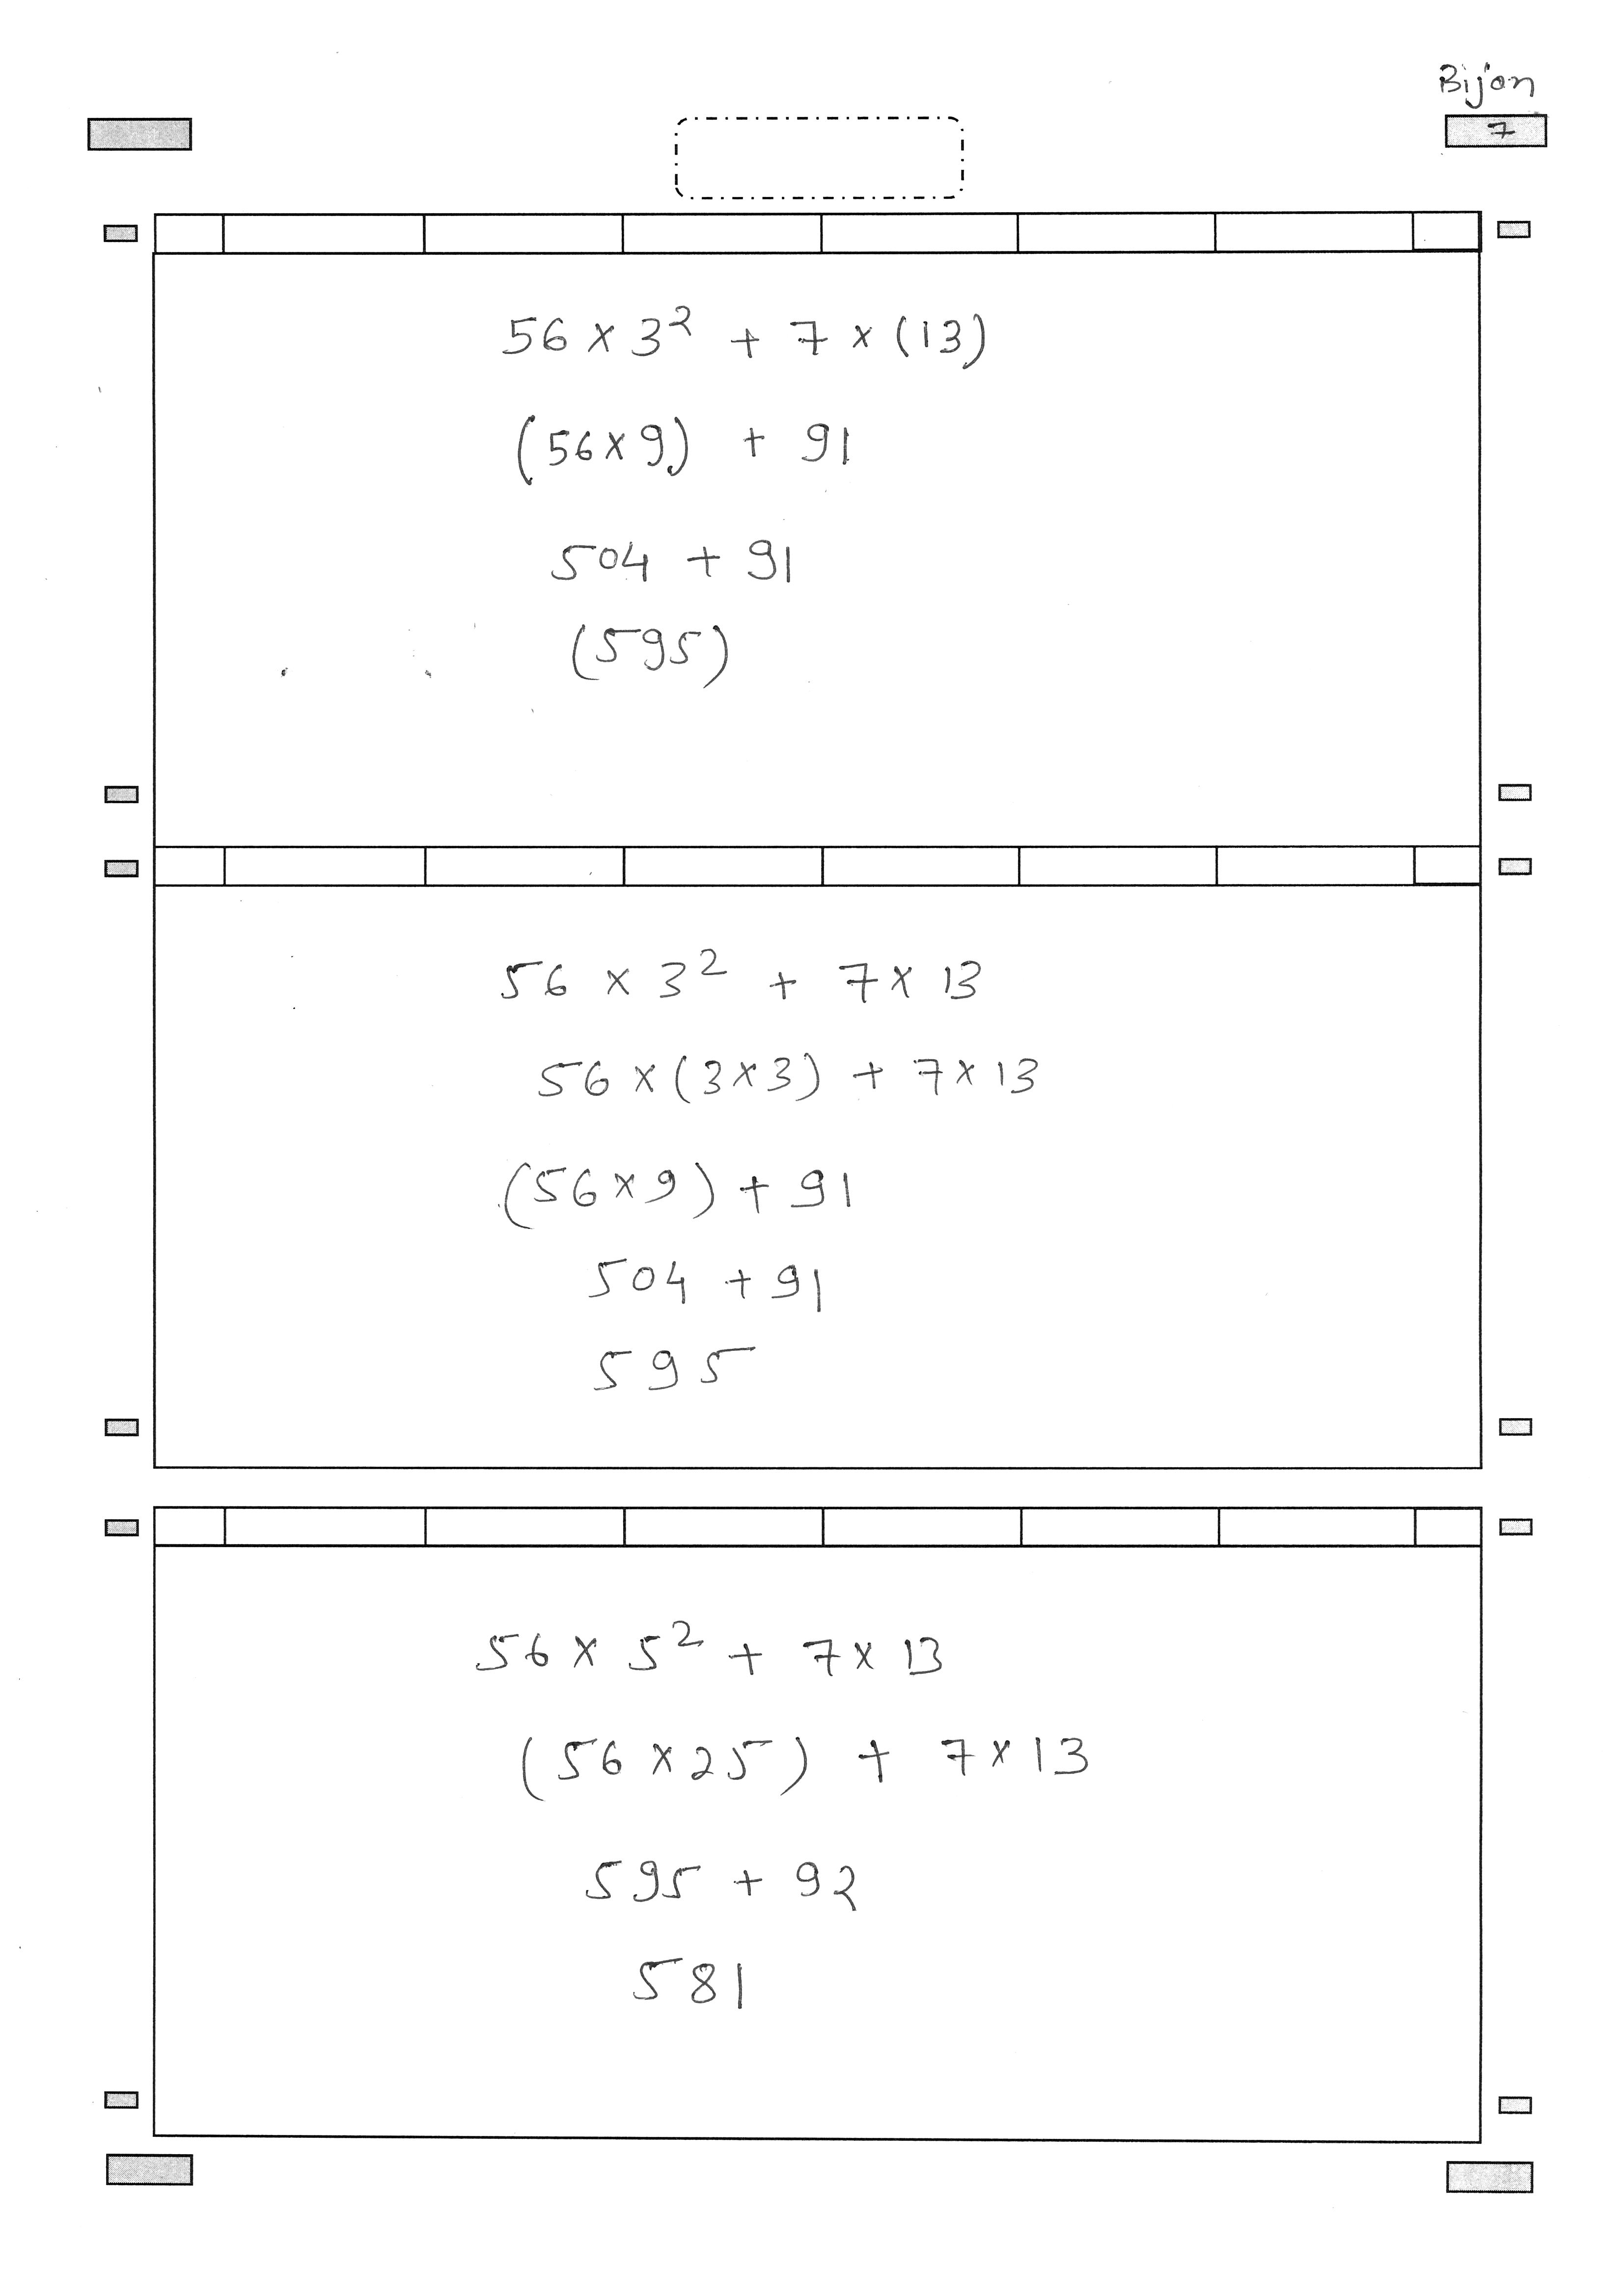 Bijon
7
56 × 3² + 7 × (13)
(56×9) + 91
504 + 91
(595)
56 × 3² + 7 × 13
56 × (3×3) + 7 × 13
(56×9) + 91
504 + 91
595
56 × 5² + 7 × 13
(56 × 25) + 7 × 13
595 + 92
581